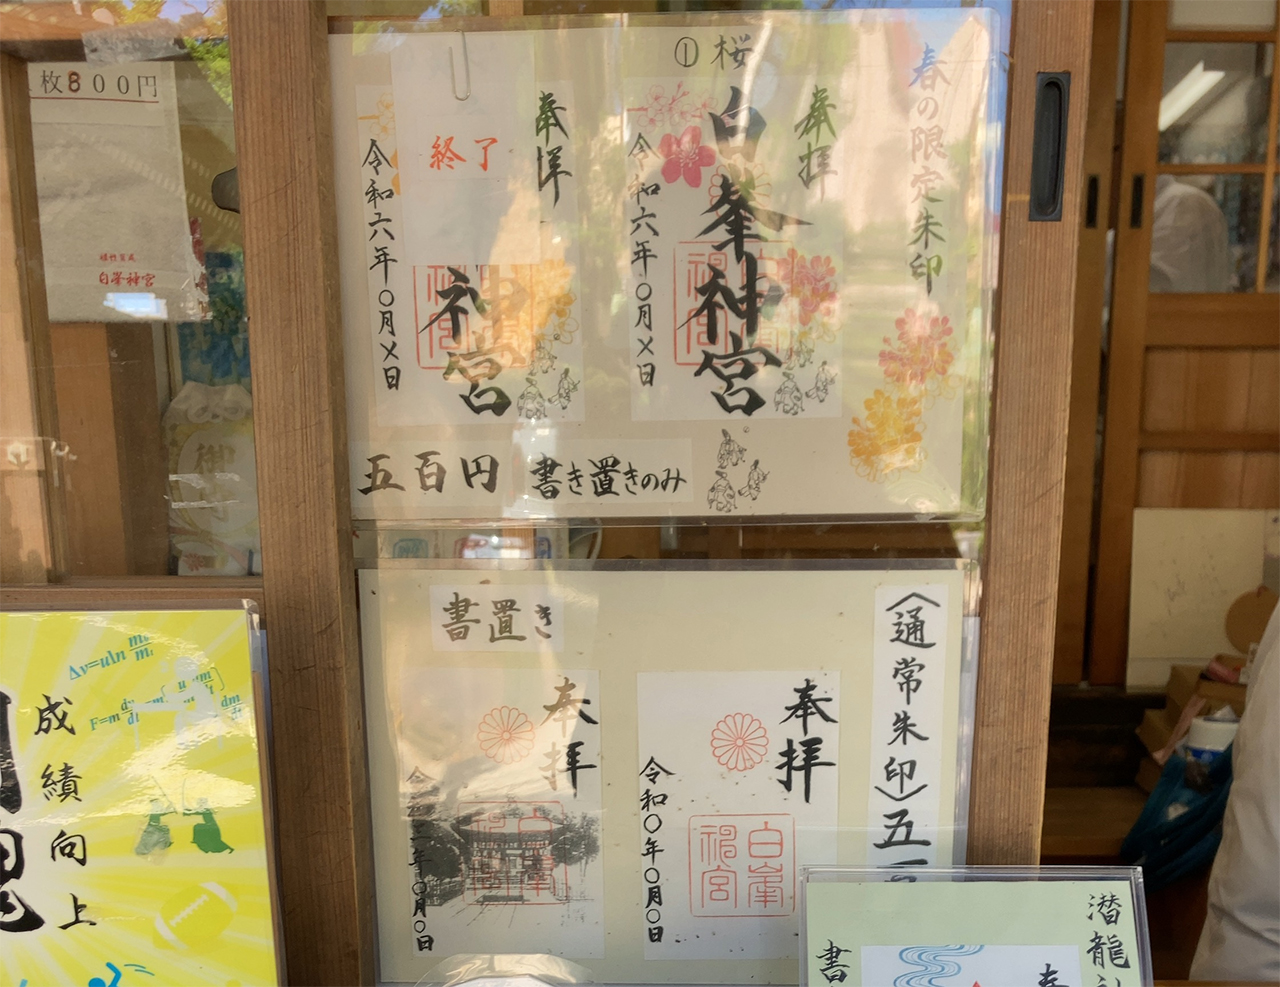 枚800円
白峯神宮
春の限定朱印
①桜
奉拝
白峯神宮
令和六年〇月〆日
奉拝
終了
神宮
令和六年〇月〆日
五百円 書き置きのみ
〈通常朱印〉五
書置き
奉拝
白峯
神宮
令和〇年〇月〇日
奉拝
白峯
年〇月〇日
成績向上
潜龍
書
奉
御守